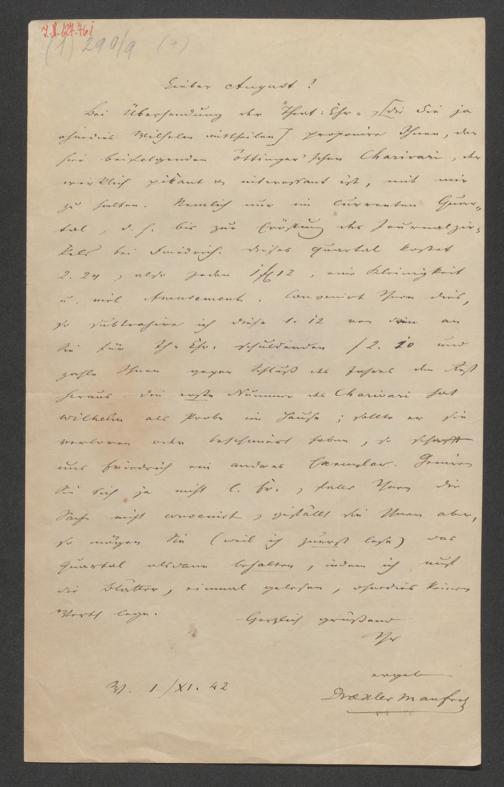 (1) 290/9 (1)
Lieber August!
Bei Übersendung der Theat: Chr. [die Sie ja
ohnedies Wilhelm mittheilen] proponire Ihnen, den
hie beifolgenden Öttinger'schen Charivari, der
wirklich pikant u interessant ist, mit mir
zu halten. Nemlich nur im currenten Quar-
tal, d. h. bis zur Eröffnung des Journalzir-
kels bei Friedrich. Dieses Quartal kostet
2.24, also jeden 1 f 12, eine Kleinigkeit
u. viel Amusement. Convenirt Ihnen dies,
so subtrahire ich diese 1.12 von den an
Sie für Th. Chr. schuldenden f 2. 20 und
zahle Ihnen gegen Schluß des Jahres den Rest
heraus. Die erste Nummer des Charivari hat
Wilhelm als Probe im Hause; sollte er sie
verloren oder beschmiert haben, so schafft
uns Friedrich ein anderes Exemplar. Geniren
Sie sich ja nicht l. Fr., falls Ihnen die
Sache nicht convenirt, gefällt sie Ihnen aber,
so mögen Sie (weil ich zuerst lese) das
Quartal alsdann behalten, indem ich auf
die Blätter, einmal gelesen, ohnedies keinen
Werth lege.
Herzlich grüßend
Ihr
ergeb
Dräxler Manfred
W. 1/XI. 42